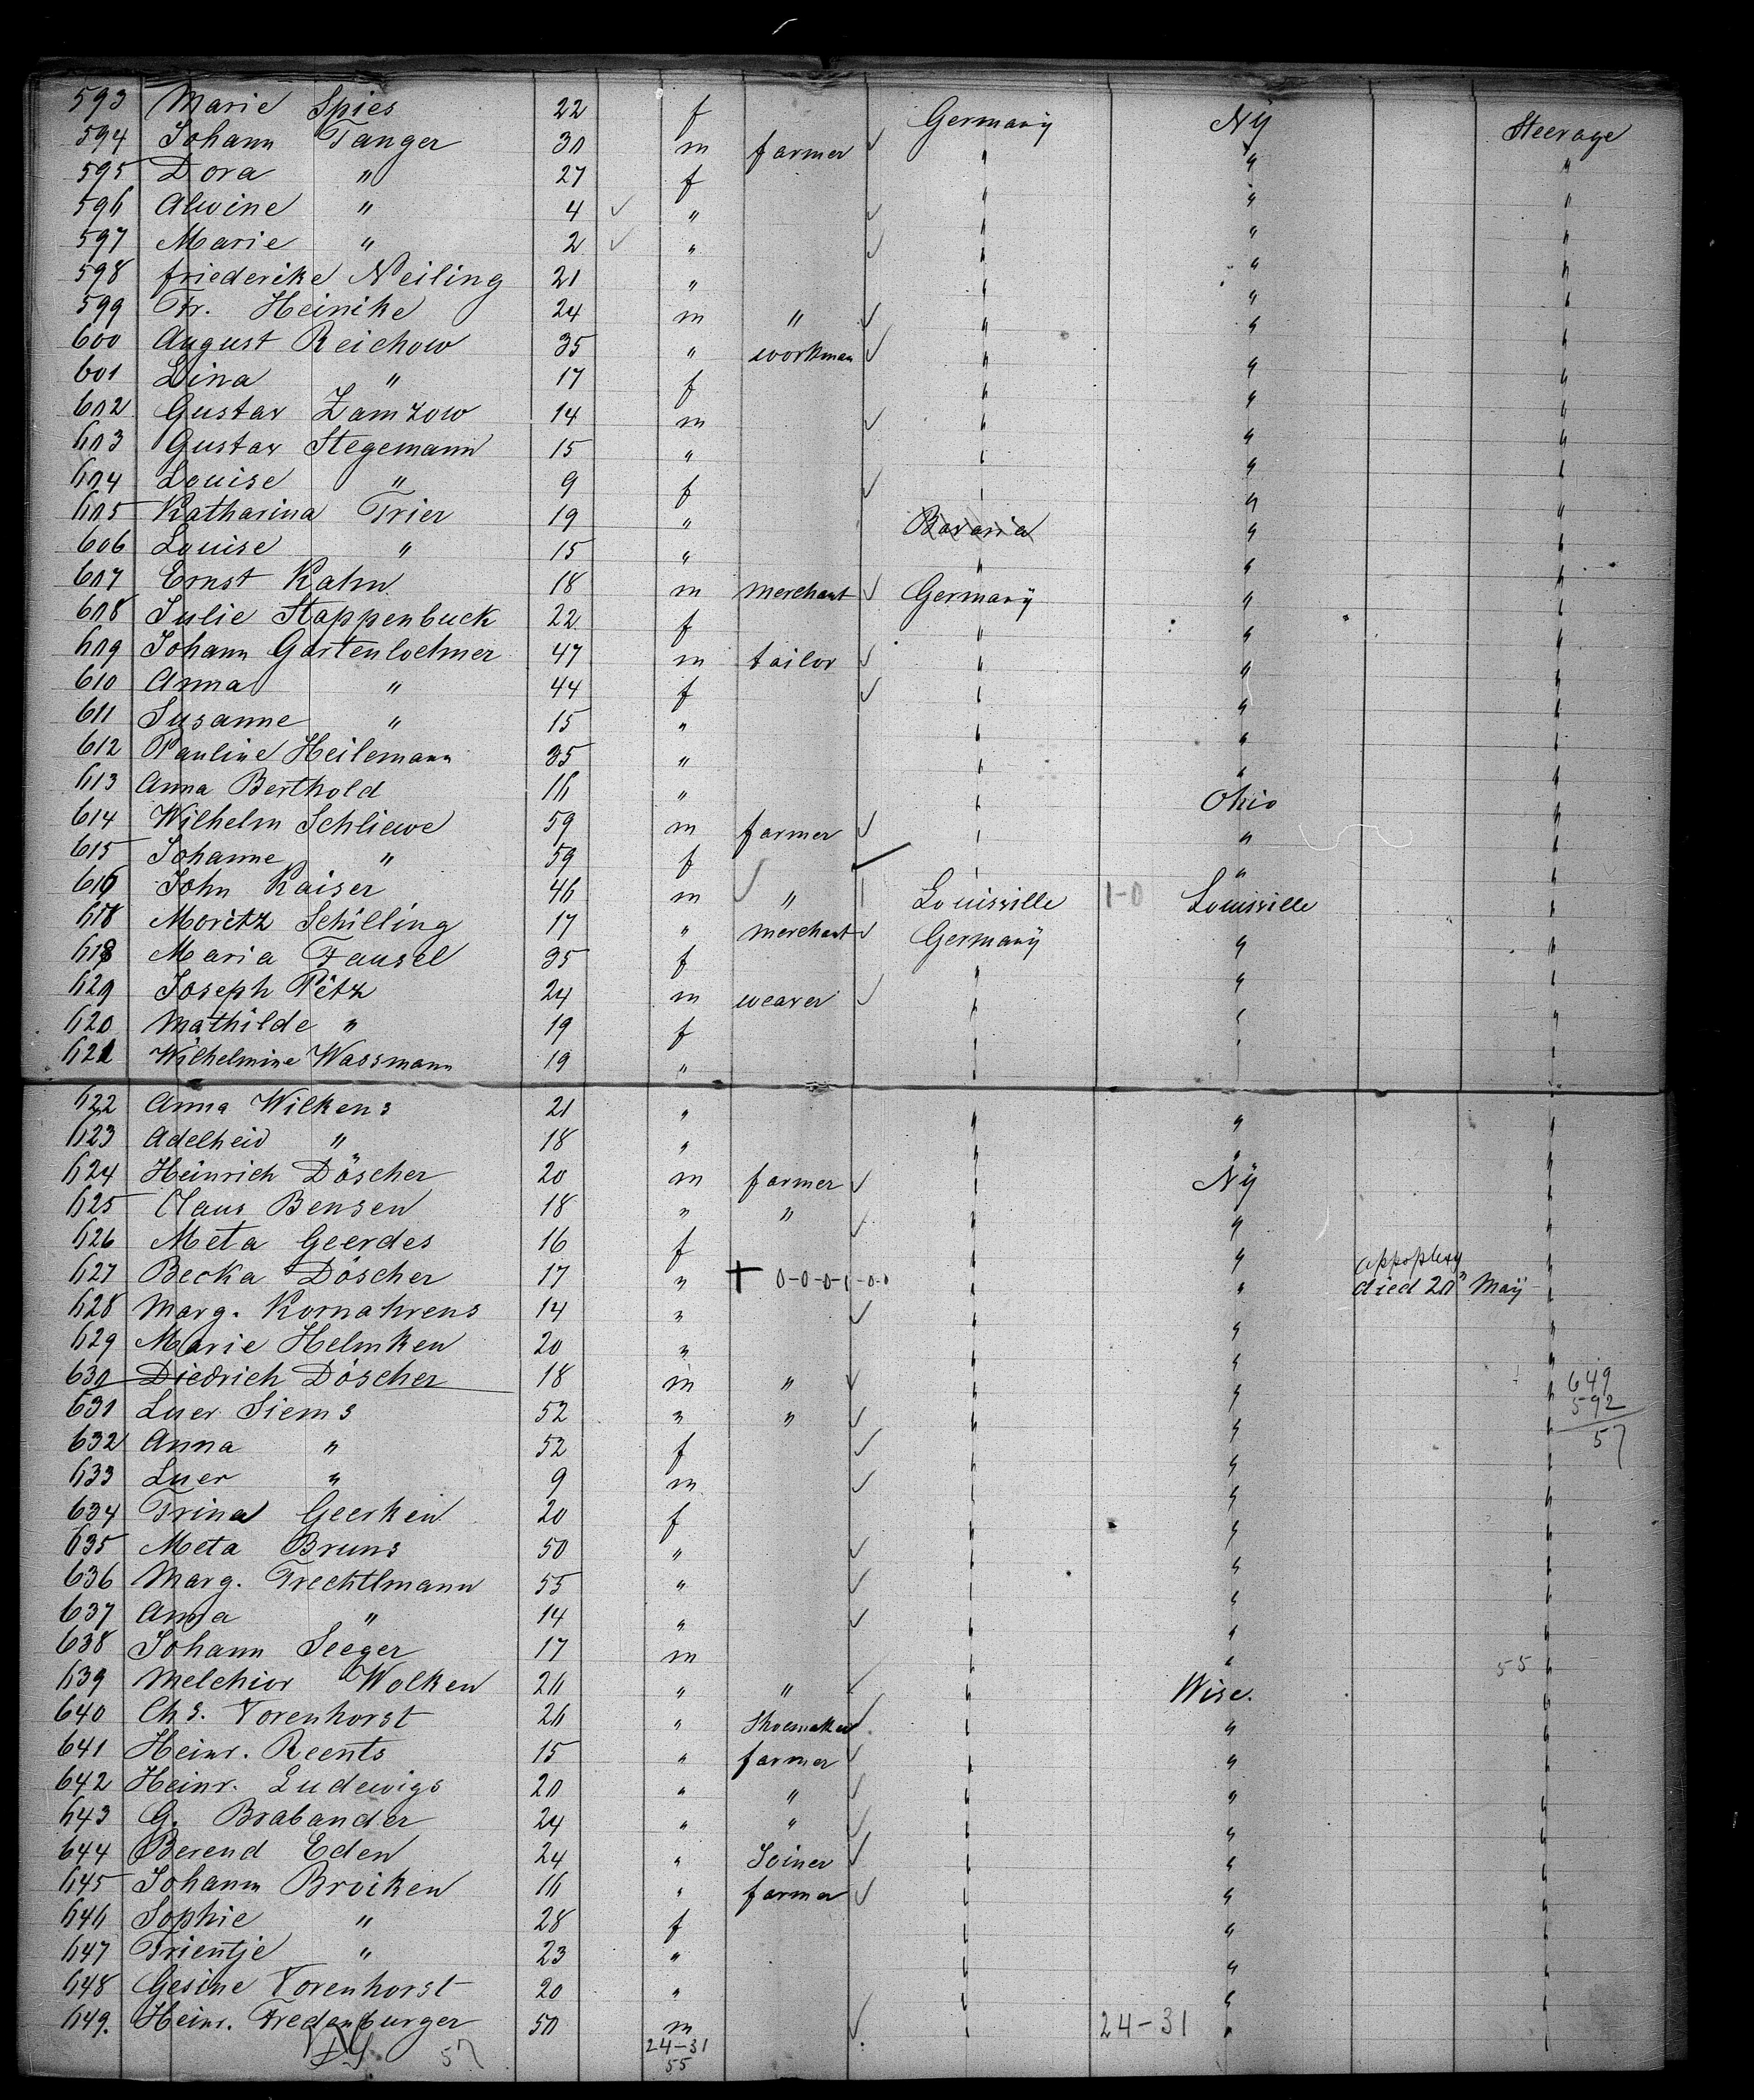 593 Marie Spies 22 f Germany Ny Steerage
594 Johann Tanger 30 m farmer ✓ " " "
595 Dora " 27 f " " "
596 Alwine " 4 ✓ " ✓ " " "
597 Marie " 2 ✓ " ✓ " " "
598 friederike Neiling 21 " " " "
599 Fr. Heinike 24 m " ✓ " " "
600 August Reichow 35 " workman ✓ " " "
601 Lina " 17 f " " "
602 Gustav Zamzow 14 m ✓ " " "
603 Gustav Stegemann 15 " " " "
604 Louise " 9 f ✓ " " "
605 Katharina Trier 19 " Bavaria " "
606 Louise " 15 " " " "
607 Ernst Kahn 18 m merchant ✓ Germany " "
608 Julie Stappenbeck 22 f " " "
609 Johann Gartenlochner 47 m tailor ✓ " " "
610 Anna " 44 f ✓ " " "
611 Susanne " 15 " " " "
612 Pauline Heilemann 35 " " " "
613 Anna Berthold 16 " " Ohio "
614 Wilhelm Schliewe 59 m farmer ✓ " " "
615 Johanne " 59 f ✓ " " "
616 John Kaiser 46 m ✓ " | Louisville 1-0 Louisville "
618 Moritz Schilling 17 " merchant ✓ Germany " "
618 Maria Fausel 35 f " " "
629 Joseph Petz 24 m weaver ✓ " " "
620 Mathilde " 19 f " " "
621 Wilhelmine Wassmann 19 " " " "
622 Anna Wilkens 21 " " " "
623 Adelheid " 18 " " " "
624 Heinrich Döscher 20 m farmer ✓ " Ny "
625 Claus Bensen 18 " " ✓ " " "
626 Meta Geerdes 16 f " " appoplexy "
627 Becka Döscher 17 " + 0-0-0-1-0-0 " " died 20" May "
628 Marg. Kornahrens 14 " ✓ " " "
629 Marie Helmken 20 " " " "
630 Diedrich Döscher 18 m " ✓ " " " 649
631 Luer Siems 52 " " ✓ " " " 592
632 Anna " 52 f ✓ " " " 57
633 Luer " 9 m ✓ " " "
634 Trina Geerken 20 f " " "
635 Meta Bruns 50 " ✓ " " "
636 Marg. Trechtlmann 55 " ✓ " " "
637 Anna " 14 " ✓ " " "
638 Johann Seeger 17 m " " "
639 Melchior Wolken 26 " " ✓ " Wisc. 55 "
640 Chs. Vorenhorst 26 " Shoemaker ✓ " " "
641 Heinr. Reents 15 " farmer ✓ " " "
642 Heinr. Ludewigs 20 " " ✓ " " "
643 G. Brabander 24 " " ✓ " " "
644 Berend Eden 24 " Joiner ✓ " " "
645 Johann Broiken 16 " farmer ✓ " " "
646 Sophie " 28 f " " "
647 Trientje " 23 " " " "
648 Gesine Vorenhorst 20 " " " "
649. Heinr. Fredenburger 50 m ✓ " 24-31 " "
57 24-31
55